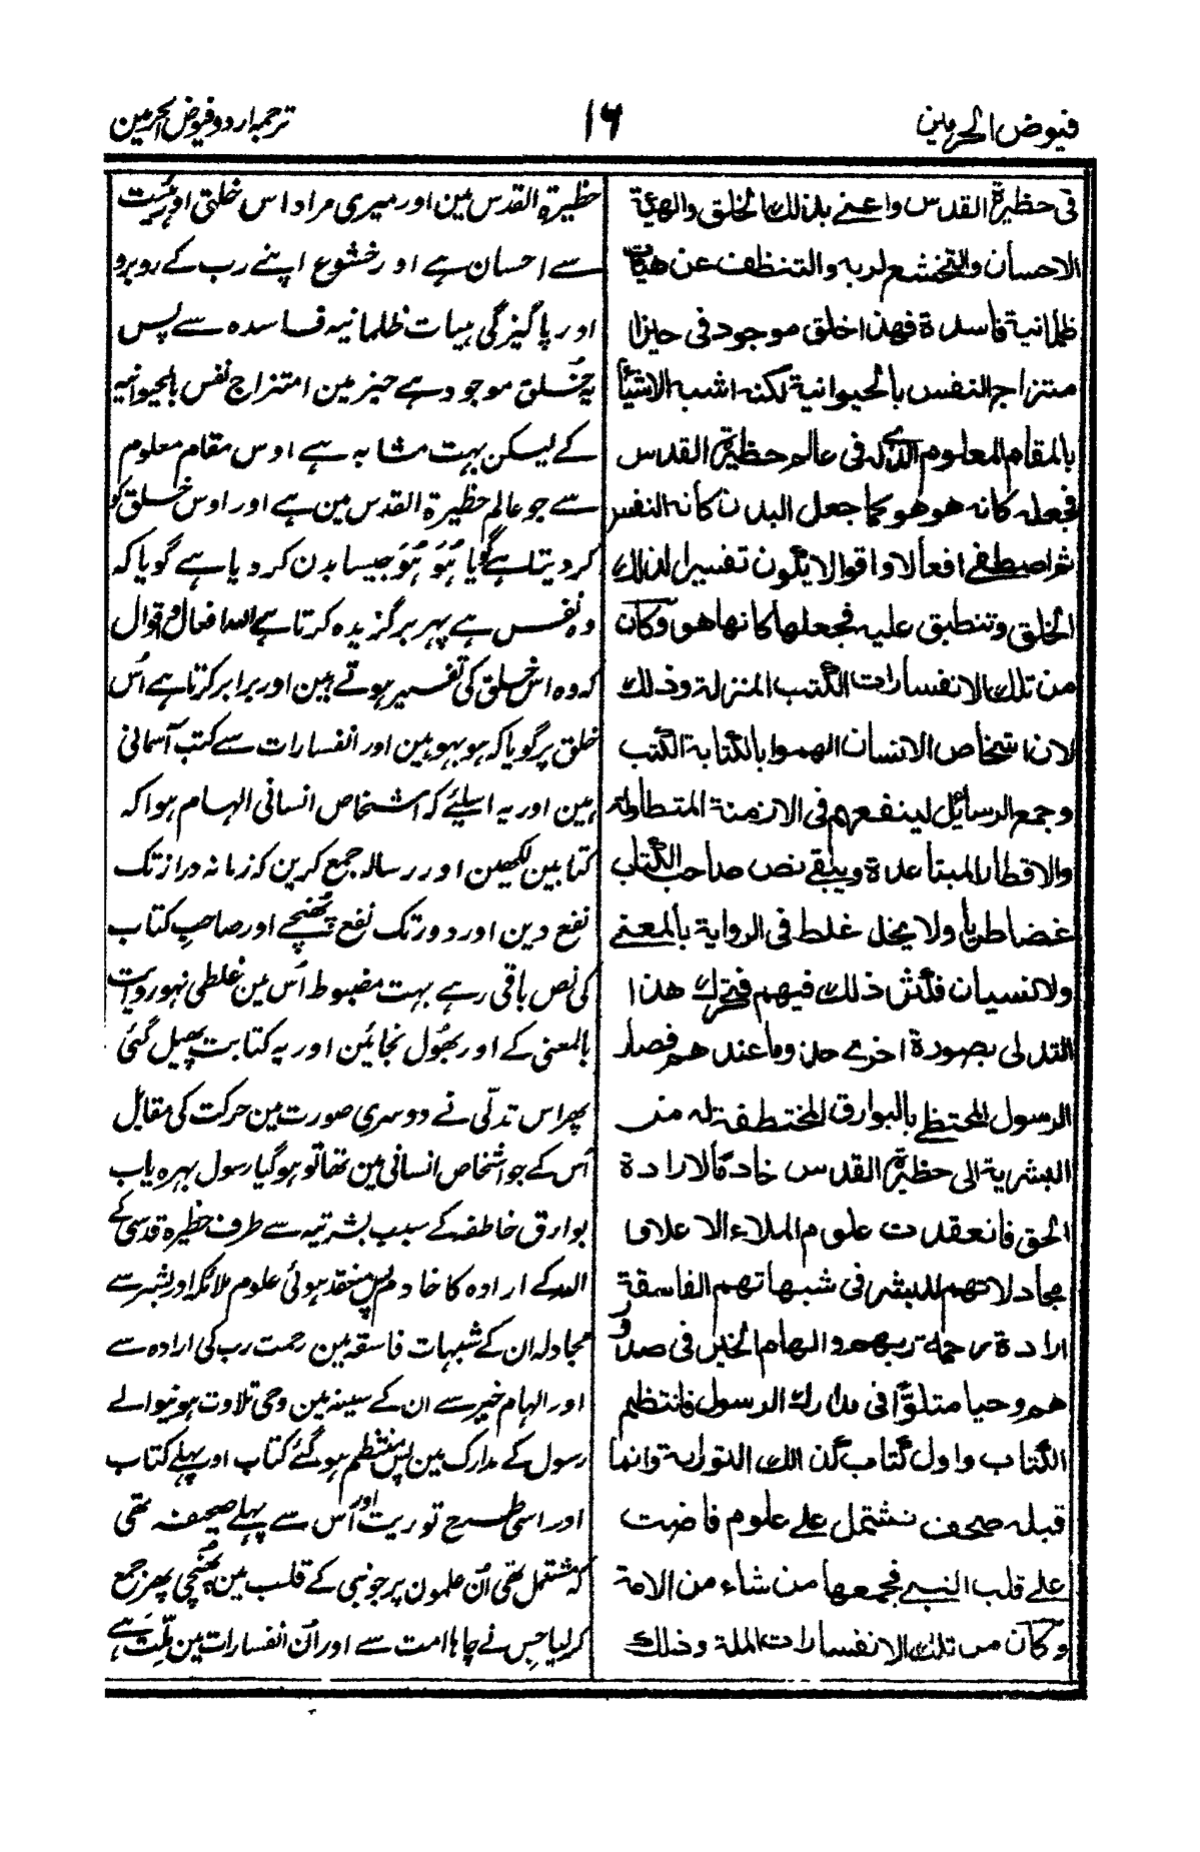 فيوض الحرمين
١٦
ترجمہ اردو فیوض الحرمین
فى حظيرة القدس واعنى بذلك الخلق والهيئة
الاحسان والتخشع لربه والتنظف عن هيات
ظلمانية فاسدة فهذا خلق موجود فى حيزا
متزاج النفس بالحيوانية لكنه اشبه الاشيأ
بالمقام المعلوم الذى له فى عالم حظيرة القدس
فجعله كانه هو هو كما جعل البدن كانه النفس
ثم اصطفى افعالا واقوالا يكون تفسيرا لذلك
الخلق وتنطبق عليه فجعلها كانها هو وكان
من تلك الانفسارات الكتب المنزلة وذلك
لان اشخاص الانسان الهموا بالكتابة الكتب
وجمع الرسائل لينفعهم فى الازمنة المتطاولة
والاقطار المبتاعدة ويبقى نص صاحب الكتاب
غضا طريا ولا يخل غلط فى الرواية بالمعنى
ولا نسيان فلنش ذلك فيهم فتحرك هذا
التدلى بصورة اخرى حذو ما عندهم فصار
الرسول المحتظى بالبوارق المختطفة له من
البشرية الى حظيرة القدس خادما لارادة
الحق فانعقدت علوم الملاء الاعلى و
مجادلاتهم للبشر فى شبهاتهم الفاسقة
ارادة رحمة ربهم والهام الخير فى صدو
هم وحيا متلوا فى مدارك الرسول فانتظم
الكتاب واول كتاب كذلك التورىة وانما
قبله صحف تشتمل على علوم فاضت
على قلب النبى فجمعها من شاء من الامة
وكان من تلك الانفسارات الملة وذلك
حظیرۃ القدس مین اور میری مراد اس خلق اور ہیئت
سے احسان ہے اور خشوع اپنے رب کے روبرو
اور پاکیزگی ہیات ظلمانیہ فاسدہ سے پس
یہ خُلق موجود ہے حیز مین امتزاج نفس بالحیوانیہ
کے لیکن بہت مشابہ ہے اوس مقام معلوم
سے جو عالم حظیرۃ القدس مین ہے اور اوس خلق کو
کر دیتا ہے گویا ہُوَ ہُوَ جیسا بدن کر دیا ہے گویا کہ
وہ نفس ہے پہر برگزیدہ کرتا ہے اللہ افعال و اقوال
کہ وہ اس خلق کی تفسیر ہوتے ہین اور برابر کرتا ہے اُس
خلق پر گویا کہ ہو بہو ہین اور انفسارات سے کتب آسمانی
ہین اور یہ اسلیئے کہ اشخاص انسانی الہام ہوا کہ
کتابین لکھین اور رسالہ جمع کرین کہ زمانہ دراز تک
نفع دین اور دور تک نفع پہُنچے اور صاحبِ کتاب
کی نص باقی رہے بہت مضبوط اُس مین غلطی نہو روایت
بالمعنی کے اور بھُول نجائین اور یہ کتابت پھیل گئی
پھر اس تدلّی نے دوسری صورت مین حرکت کی مقابل
اُس کے جو اشخاص انسانی مین تھا تو ہو گیا رسول بہرہ یاب
بوارق خاطفہ کے سبب بشریتہ سے طرف حظیرۃ قدسی کے
اللہ کے ارادہ کا خادم پس منعقد ہوئی علوم ملائکہ اور بشر سے
مجادلہ ان کے شبہات فاسقہ مین رحمت رب کی ارادہ سے
اور الہام خیر سے ان کے سینہ مین وحی تلاوت ہونیوالے
رسول کے مدارک مین پس منتظم ہو گئے کتاب اور پہلے کتاب
اور اسی طرح توریت اور اُس سے پہلے صحیفہ تھی
کہ مشتمل تھی اُن علمون پر جو نبی کے قلب مین پُہنچی پھر جمع
کر لیا جس نے چاہا امت سے اور اُن انفسارات مین مِلّت ہے